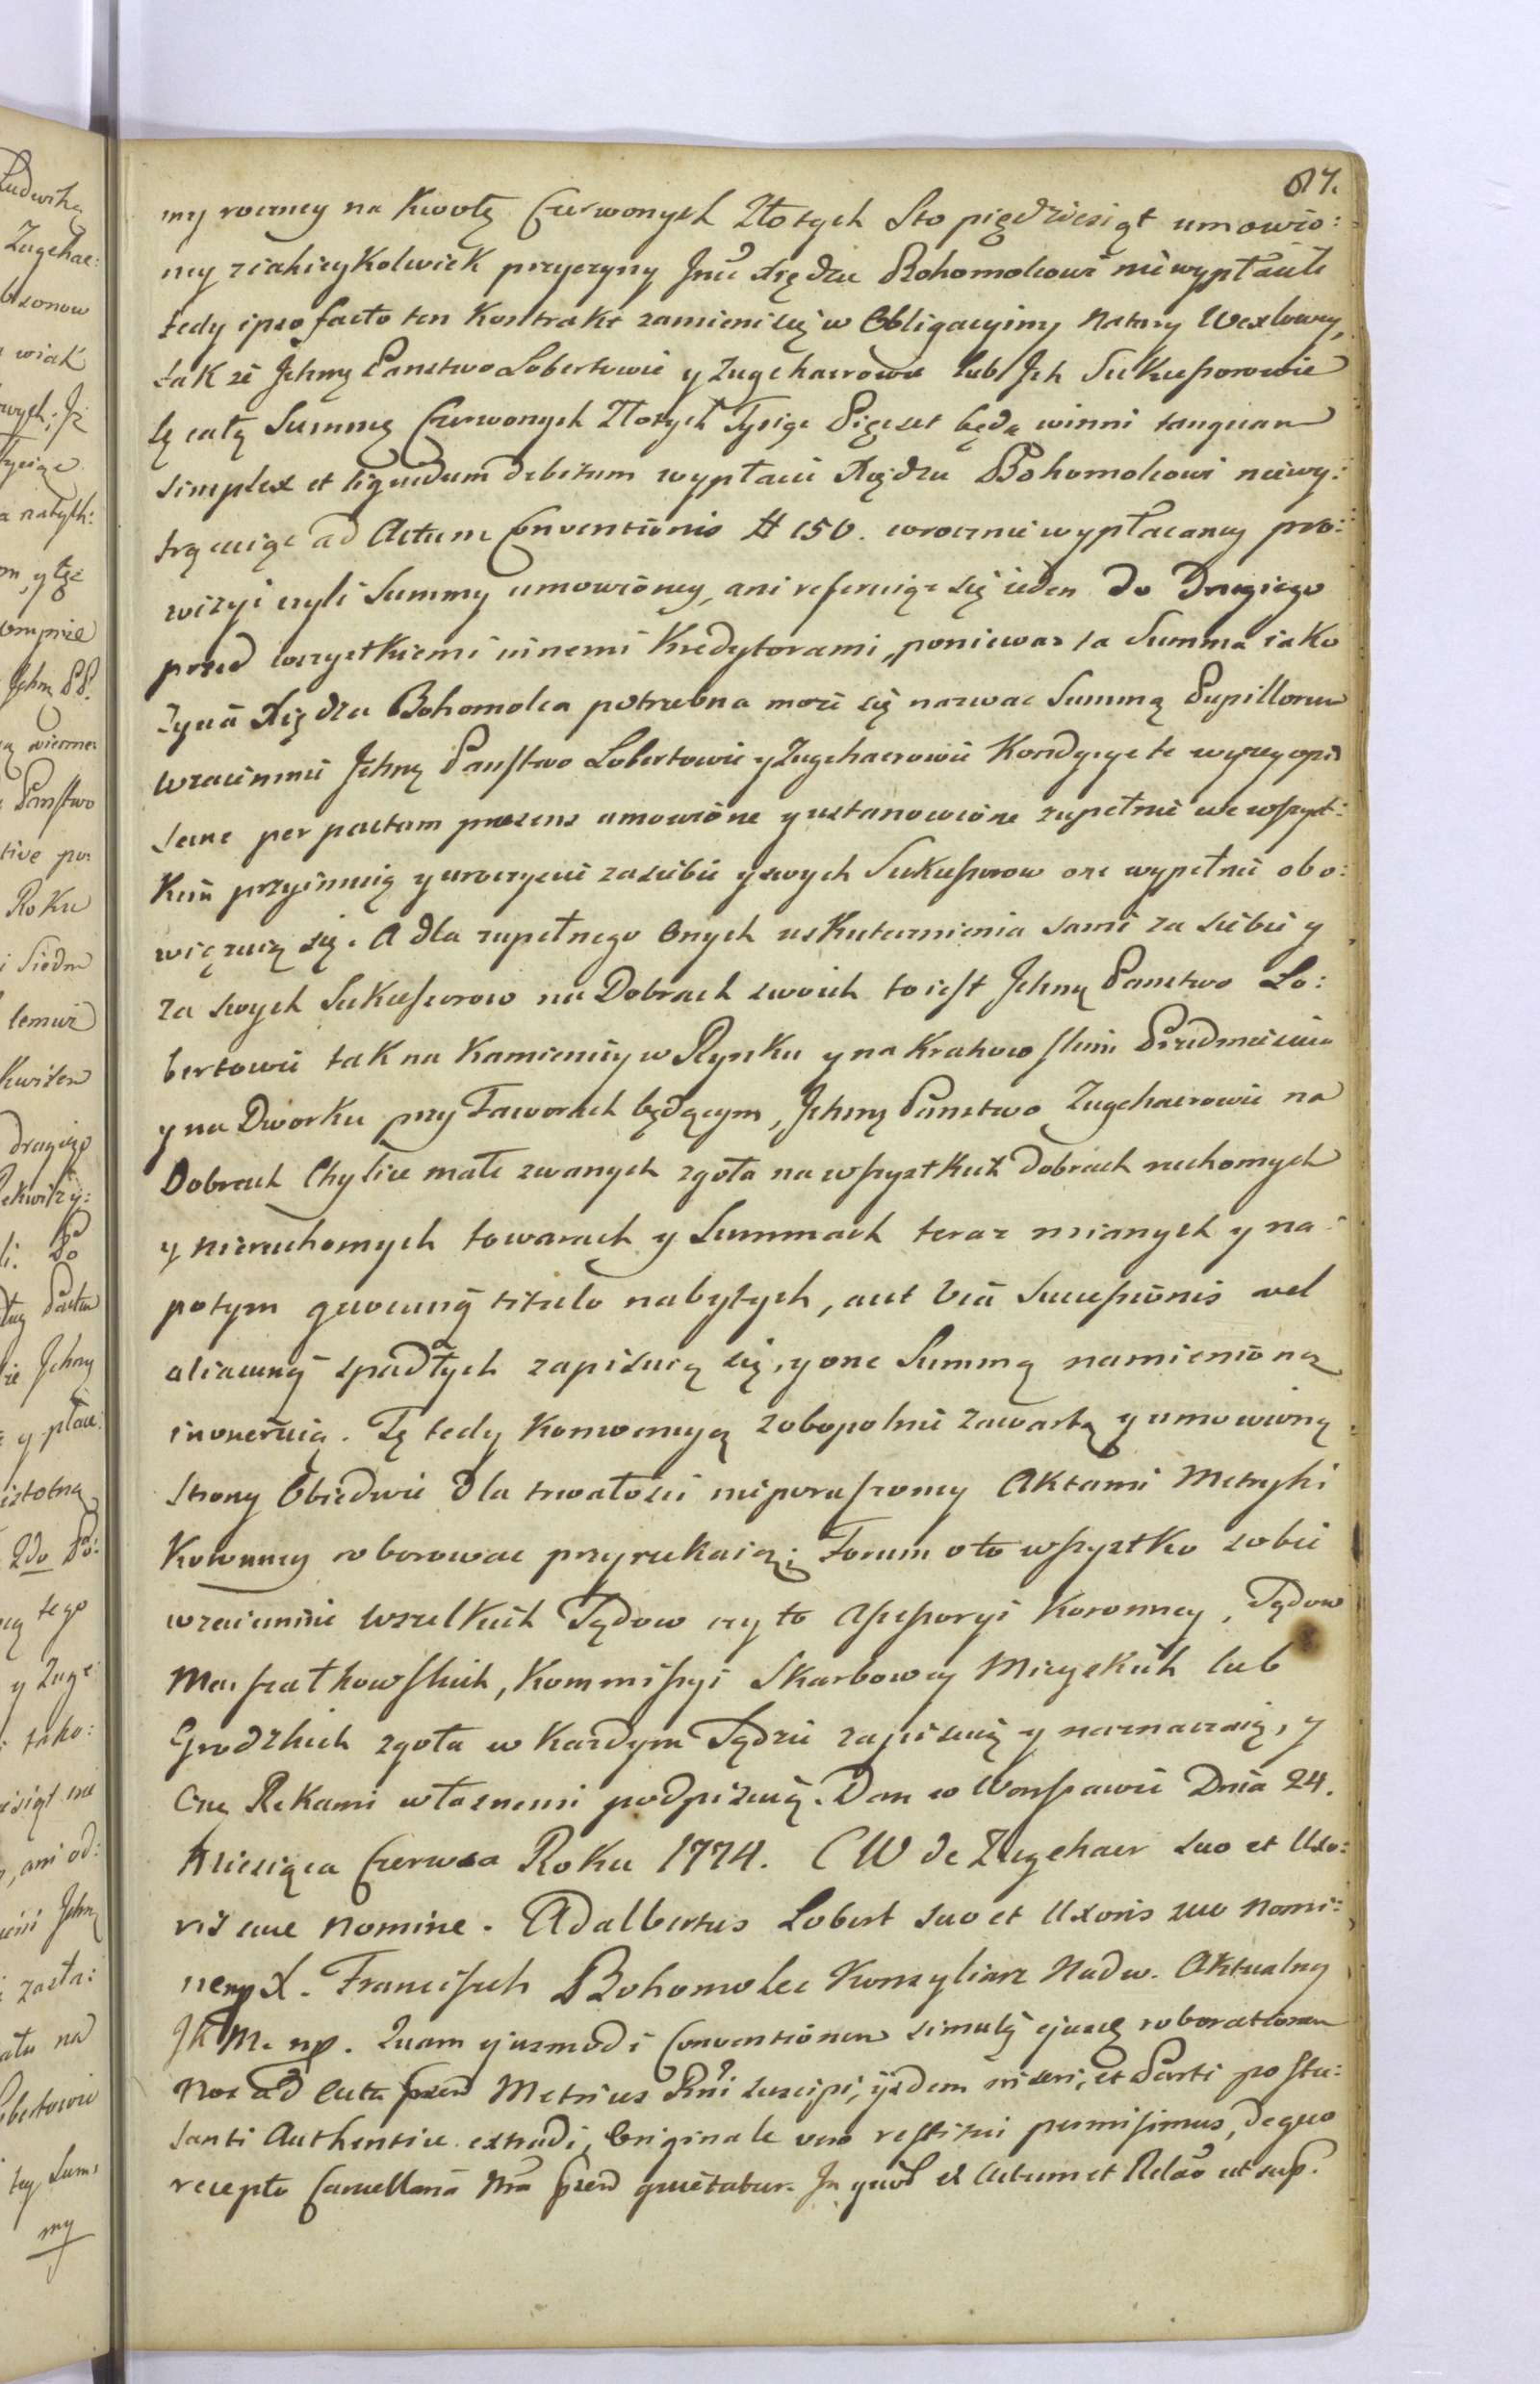 87.
my roczney na Kwotę Czerwonych Złotych Sto pięćdziesiąt umowio:
ney z iakieykolwiek przyczyny Jmć Xiędzu Bohomolcowi nie wypłacili
tedy ipso facto ten Kontrakt zamieni się w Obligacyiny Natury Wexlowey,
tak że Jchmę Panstwo Lobertowie y Zugehaerowie lub Jch Sukcessorowie
tę całą Summę Czerwonych Złotych Tysiąc Pięcset będą winni tanquam
simplex et liquidum debitum wypłacić Xiędzu Bohomolcowi niewy:
trącaiąc ad Actum Conventionis # 150. corocznie wypłacaney pro:
wizyi czyli Summy umowioney, ani referuiąc się ieden do Drugiego
przed wszystkiemi innemi Kredytorami, poniewaz ta Summa iako
życiu Xiędza Bohomolca potrzebna może się nazwac Summą Pupillorum
Wzaiemnie Jchmę Panstwo Lobertowie y Zugehaerowie Kondycye te wyzey opi
sane per pactum praesens umowione y ustanowione zupełnie we wszyst:
kim przyimuią y uroczyscie za siebie y swych Sukcessorow one wypełnić obo:
więzuią się. A dla zupełnego Onych uskutecznienia sami za siebie y
za swych Sukcessorow na Dobrach swoich to iest Jchmę Panstwo Lo:
bertowie tak na Kamienicy w Rynku y na Krakowskim Przedmiesciu
y na Dworku przy Taworach będącym, Jchmę Panstwo Zugehaerowie na
Dobrach Chylice małe zwanych zgoła na wszystkich dobrach ruchomych
y nieruchomych towarach y Summach teraz mianych y na:
potym quocunq titulo nabytych, aut via Successionis vel
aliacunq spadłych zapisuią się, y one Summą namienioną
inoneruią. Tę tedy Konwencyą zobopolnie zawartą y umowioną
Strony Obiedwie dla trwałości nieporuszoney Aktami Metryki
Koronney roborowac przyrzekaią; Forum o to wszystko sobie
wzaiemnie wszelkich Sądow czy to Assessoryi Koronney, Sądow
Marszałkowskich, Kommissyi Skarbowey Mieyskich lub
Grodzkich zgoła w Kazdym Sądzie zapisuią y naznaczaią, y
Onę Rękami własnemi podpisuią. Dan w Warszawie Dnia 24.
Miesiąca Czerwca Roku 1774. C W de Zugehaer suo et Uxo:
ris suae Nomine. Adalbertus Lobert suo et Uxoris suae Nomi:
ne mp X. Franciszek Bohomolec Konsyliarz Nadw. Aktualny
JK M. mp. Quam ejusmodi Conventionem simulq ejusdq roborationem
Nos ad Acta Metrices Rni suscipi, ijsdem inseri, et Parti postu:
lanti Authentice extradi, Originale vero restitui permisimus, de quo
recepto Cancellaria Nra quietatur. In quor et Actum et Relao ut sup.